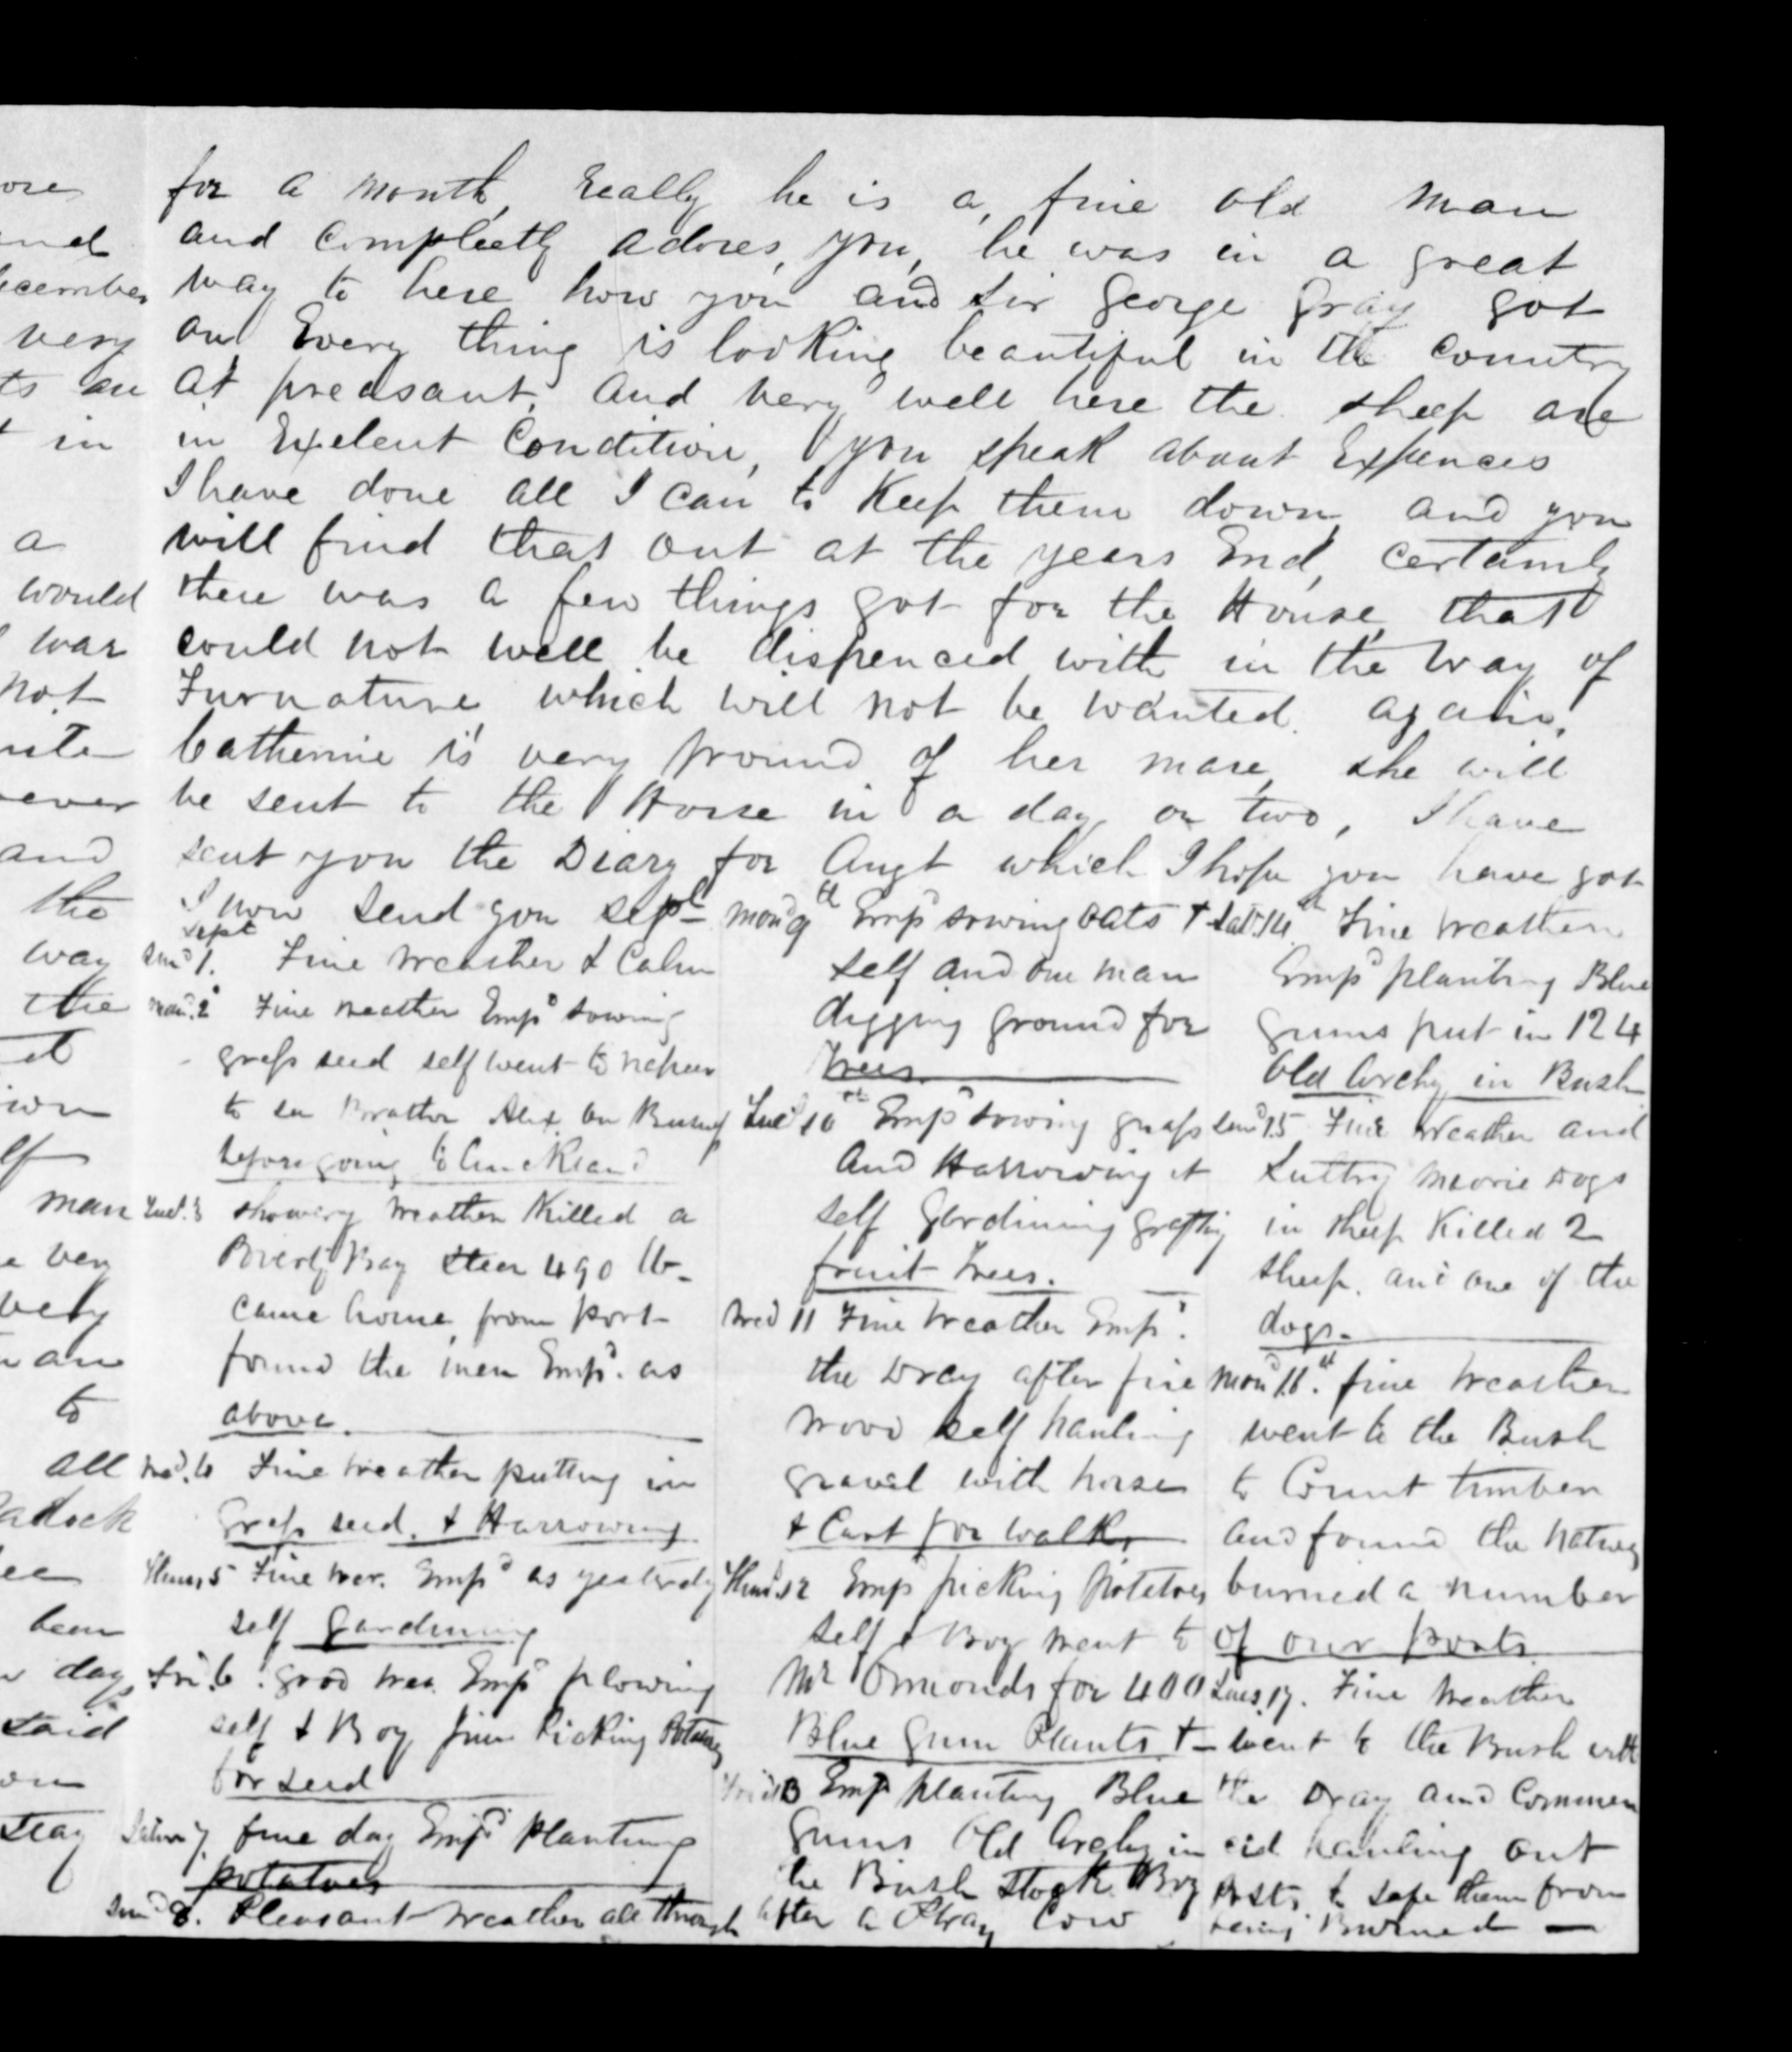 for a month, really he is a, fine old man
and compleetly adores, you, he was in a great
way to here how you and Sir George Gray got
on Every thing is looking beautiful in the Country
at preasant, and very well here the sheep are
in Exelent Condition, you speak about Expences
I have done all I can to Keep them down, and you
will find that out at the years End, certainly
there was a few things got for the House, that
could not well be dispenced with in the way of
Furnature, which will not be wanted again,
Catherine is very pround of her mare, she will
be sent to the Horse in a day or two, I have
sent you the Diary for Augt which I hope you have got
I now send you Sept
Sept
Sund 1. Fine Weather & Calm
Mon. 2d Fine weather Empd sowing
grass seed self went to Napier
to see Brother Alex on Busnes
before going to Auckland
Tued. 3 showery weather Killed a
Poverty Bay Steer 490 lb
came home, from port
found the men Empd. as
above.
Wed. 4 Fine weather putting in
Grass seed, & Harrowing
Thurs 5 Fine wer. Empd as yesterdy
self gardining
Fri. 6. good wea. Empd plowing
self & Boy Jim Picking Potatoes
for seed
Saturn 7. fine day Empd planting
potatoes
Sund 8. Pleasant weather all through
Mond 9th Empd sowing oats &
self and one man
digging ground for
trees
Tued 10th Empd sowing grass
and Harrowing it
self gardining grafting
fruit trees.
Wed 11 Fine weather Empd.
the Dray after fire
wood self hauling
gravel with horse
& Cart for walk,
Thurd. 12 Empd picking potatoes
self & Boy went to
Mr Ormonds for 400
Blue Gum Plants. &
Frid 13 Empd planting Blue
Gums Old Archy in
the Bush Stock Boy
after a Stray Cow
Sat. 14th Fine weather
Empd planting Blue
gums put in 124
Old Archy in Bush
Sund 15 Fine weather and
Suttry Maorie Dogs
in sheep Killed 2
sheep. and one of the
dogs.
Mond 16th. fine weather
went to the Bush
to Count timber
and found the natives
burned a number
of our posts
Tues 17. Fine weather
went to the Bush with
the Dray and Commen
ced hauling out
Posts to safe them from
being Burned —